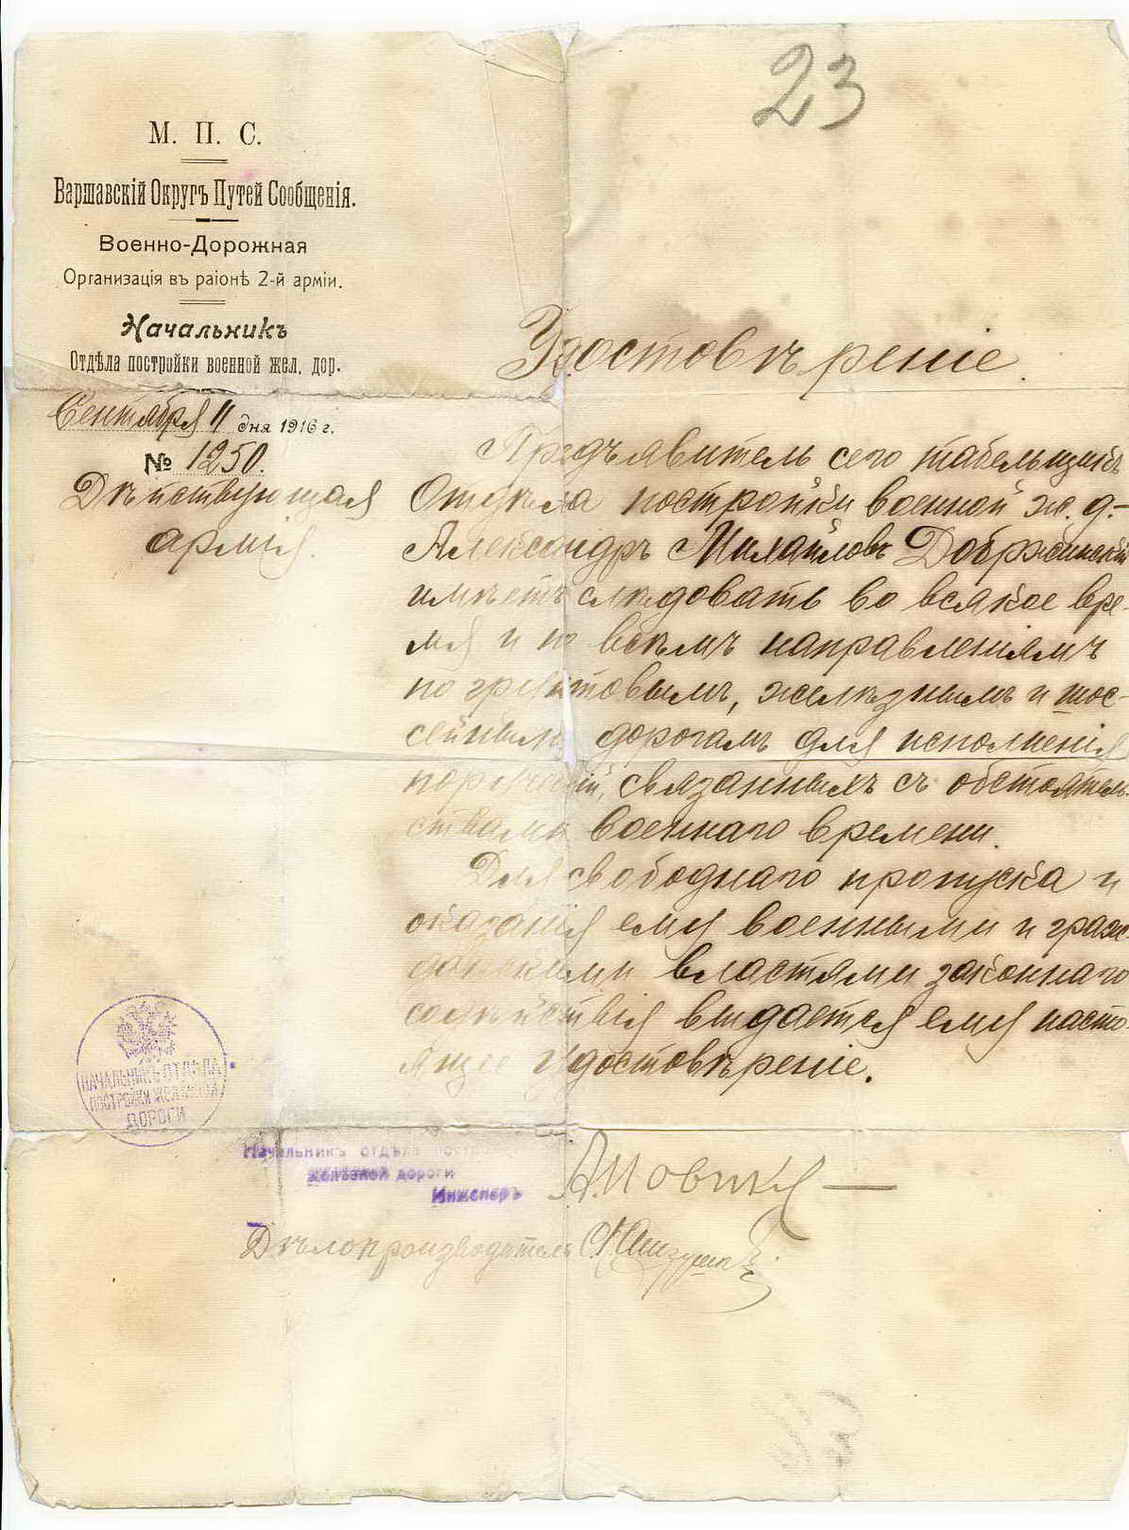 23
М. П. С.
Варшавскій Округъ Путей Сообщенія.
Военно-Дорожная
Организація въ раіонѣ 2-й арміи.
Начальникъ
Отдѣла постройки военной жел. дор.
Сентября 11 дня 1916 г.
№ 1250.
Дѣйствующая
армія.
Удостовѣреніе.
Предъявитель сего табельщикъ
Отдѣла постройки военной ж. д.–
Александръ Михайловъ Добржинскій
имѣетъ слѣдовать во всякое вре-
мя и по всѣмъ направленіямъ
по грунтовымъ, желѣзнымъ и шос-
сейнымъ дорогамъ для исполненія
порученій, связаннымъ съ обстоятель-
ствами военнаго времени.
Для свободнаго пропуска и
оказанія ему военными и граж-
данскими властями законнаго
содѣйствія выдается ему насто-
ящее удостовѣреніе.
НАЧАЛЬНИКЪ ОТДѢЛА
ПОСТРОЙКИ ЖЕЛѢЗНОЙ
ДОРОГИ
Начальникъ отдѣла
желѣзной дороги
Инженеръ
Дѣлопроизводитель